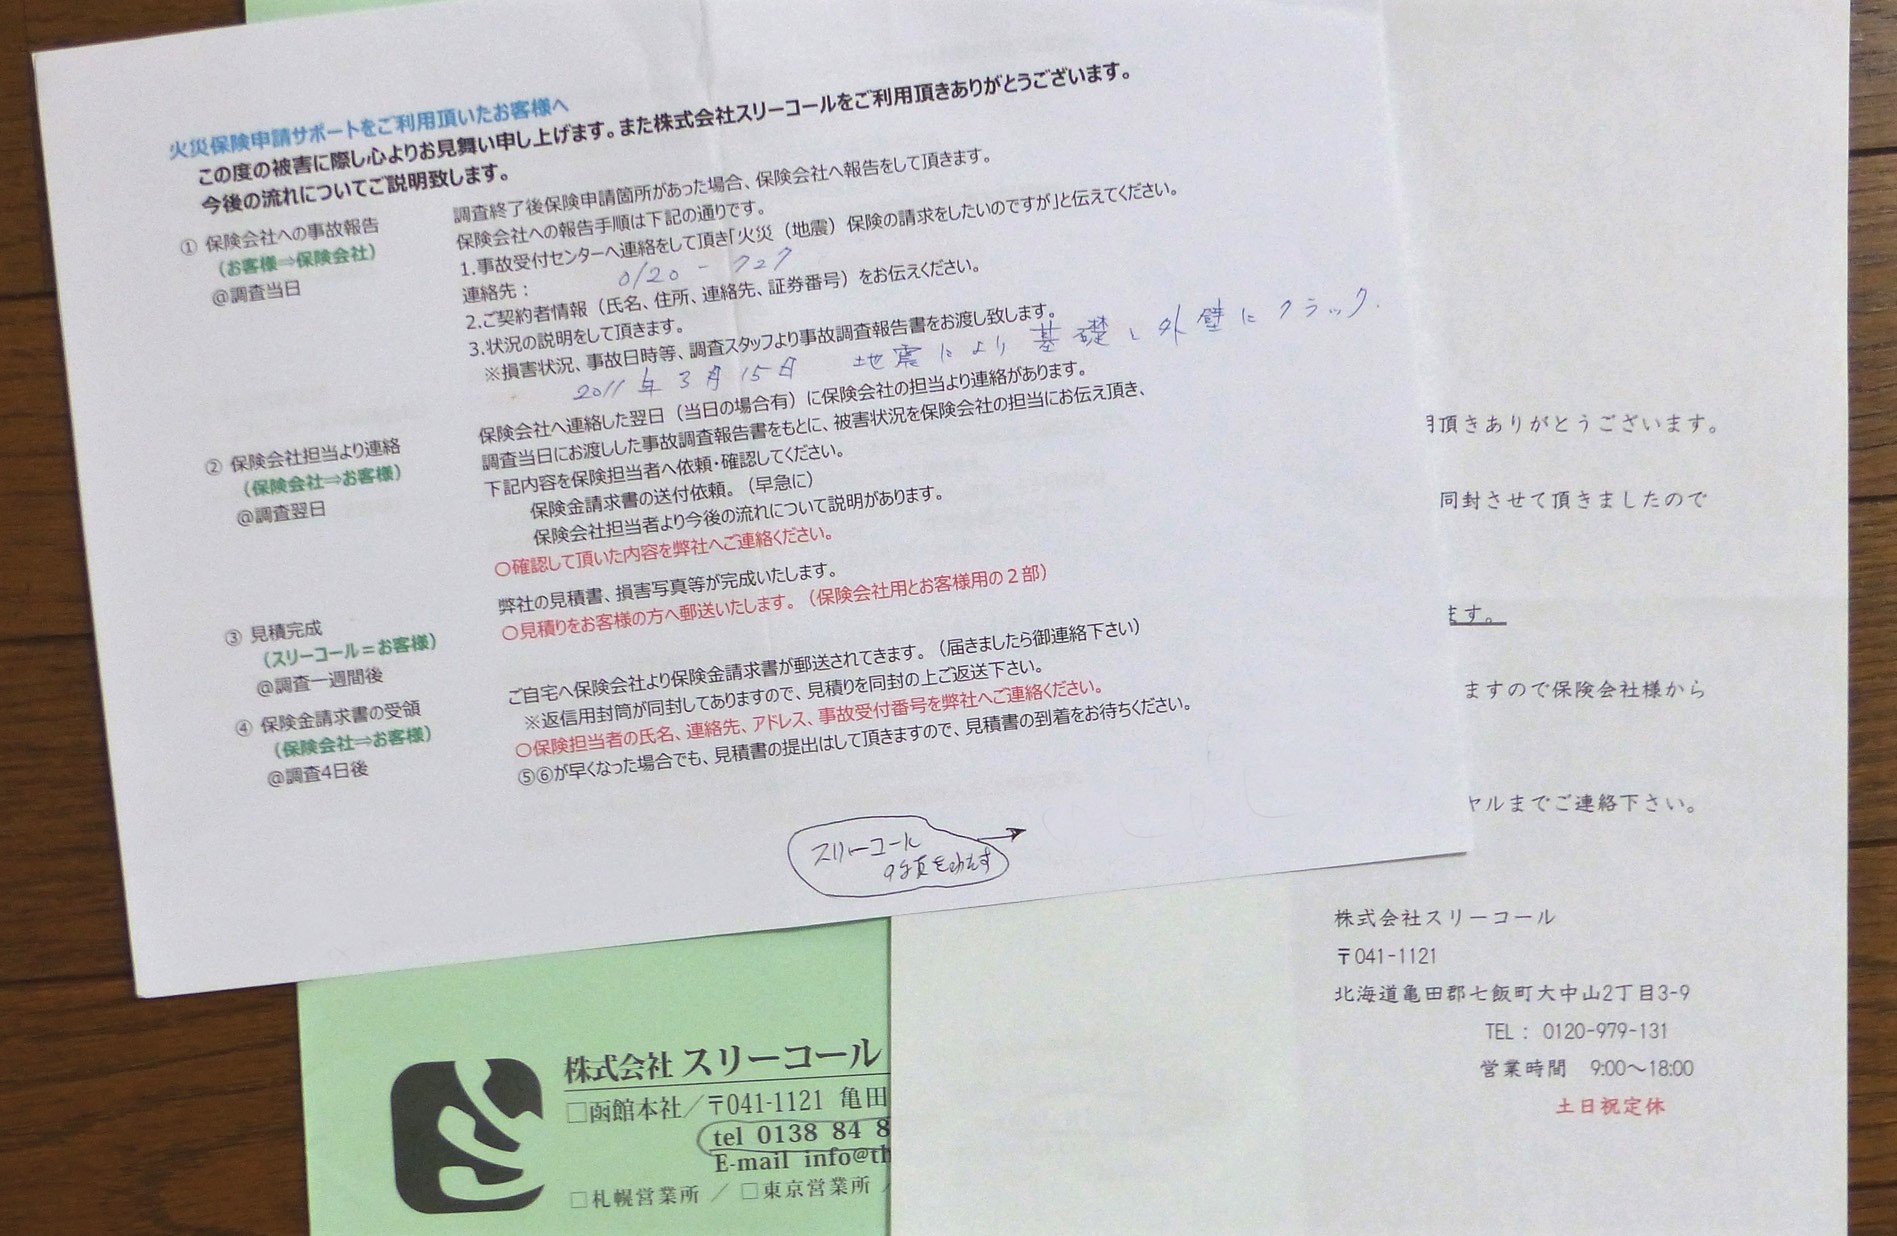 火災保険申請サポートをご利用頂いたお客様へ
この度の被害に際し心よりお見舞い申し上げます。また株式会社スリーコールをご利用頂きありがとうございます。
今後の流れについてご説明致します。
① 保険会社への事故報告
（お客様⇒保険会社）
@調査当日
調査終了後保険申請箇所があった場合、保険会社へ報告をして頂きます。
保険会社への報告手順は下記の通りです。
1.事故受付センターへ連絡をして頂き「火災（地震）保険の請求をしたいのですが」と伝えてください。
連絡先： 0120-727
2.ご契約者情報（氏名、住所、連絡先、証券番号）をお伝えください。
3.状況の説明をして頂きます。
※損害状況、事故日時等、調査スタッフより事故調査報告書をお渡し致します。
2011年3月15日 地震により基礎と外壁にクラック.
② 保険会社担当より連絡
（保険会社⇒お客様）
@調査翌日
保険会社へ連絡した翌日（当日の場合有）に保険会社の担当より連絡があります。
調査当日にお渡しした事故調査報告書をもとに、被害状況を保険会社の担当にお伝え頂き、
下記内容を保険担当者へ依頼・確認してください。
保険金請求書の送付依頼。（早急に）
保険会社担当者より今後の流れについて説明があります。
〇確認して頂いた内容を弊社へご連絡ください。
③ 見積完成
（スリーコール＝お客様）
@調査一週間後
弊社の見積書、損害写真等が完成いたします。
〇見積りをお客様の方へ郵送いたします。（保険会社用とお客様用の２部）
④ 保険金請求書の受領
（保険会社⇒お客様）
@調査4日後
ご自宅へ保険会社より保険金請求書が郵送されてきます。（届きましたら御連絡下さい）
※返信用封筒が同封してありますので、見積りを同封の上ご返送下さい。
〇保険担当者の氏名、連絡先、アドレス、事故受付番号を弊社へご連絡ください。
⑤⑥が早くなった場合でも、見積書の提出はして頂きますので、見積書の到着をお待ちください。
スリーコール
頂きありがとうございます。
同封させて頂きましたので
ます。
ますので保険会社様から
ヤルまでご連絡下さい。
株式会社スリーコール
〒041-1121
北海道亀田郡七飯町大中山2丁目3-9
TEL： 0120-979-131
営業時間 9:00～18:00
土日祝定休
株式会社 スリーコール
□函館本社／〒041-1121 亀田
tel 0138 84 8
E-mail info@th
□札幌営業所 ／ □東京営業所